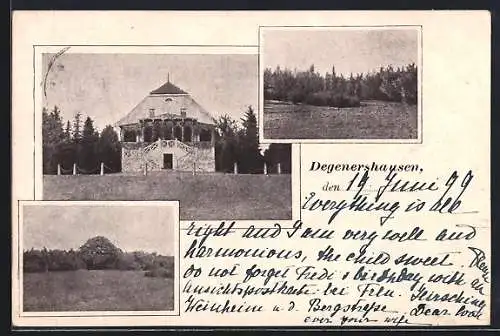 Degenershausen,
den 19 Juni 99
Everything is all
right and I am very well and
harmonious, the child sweet. Pray
do not forget Fredi's birthday with an
Ansichtspostkarte bei Frln.
Weinheim a. d. Bergstraße. Dear love
ever your wife